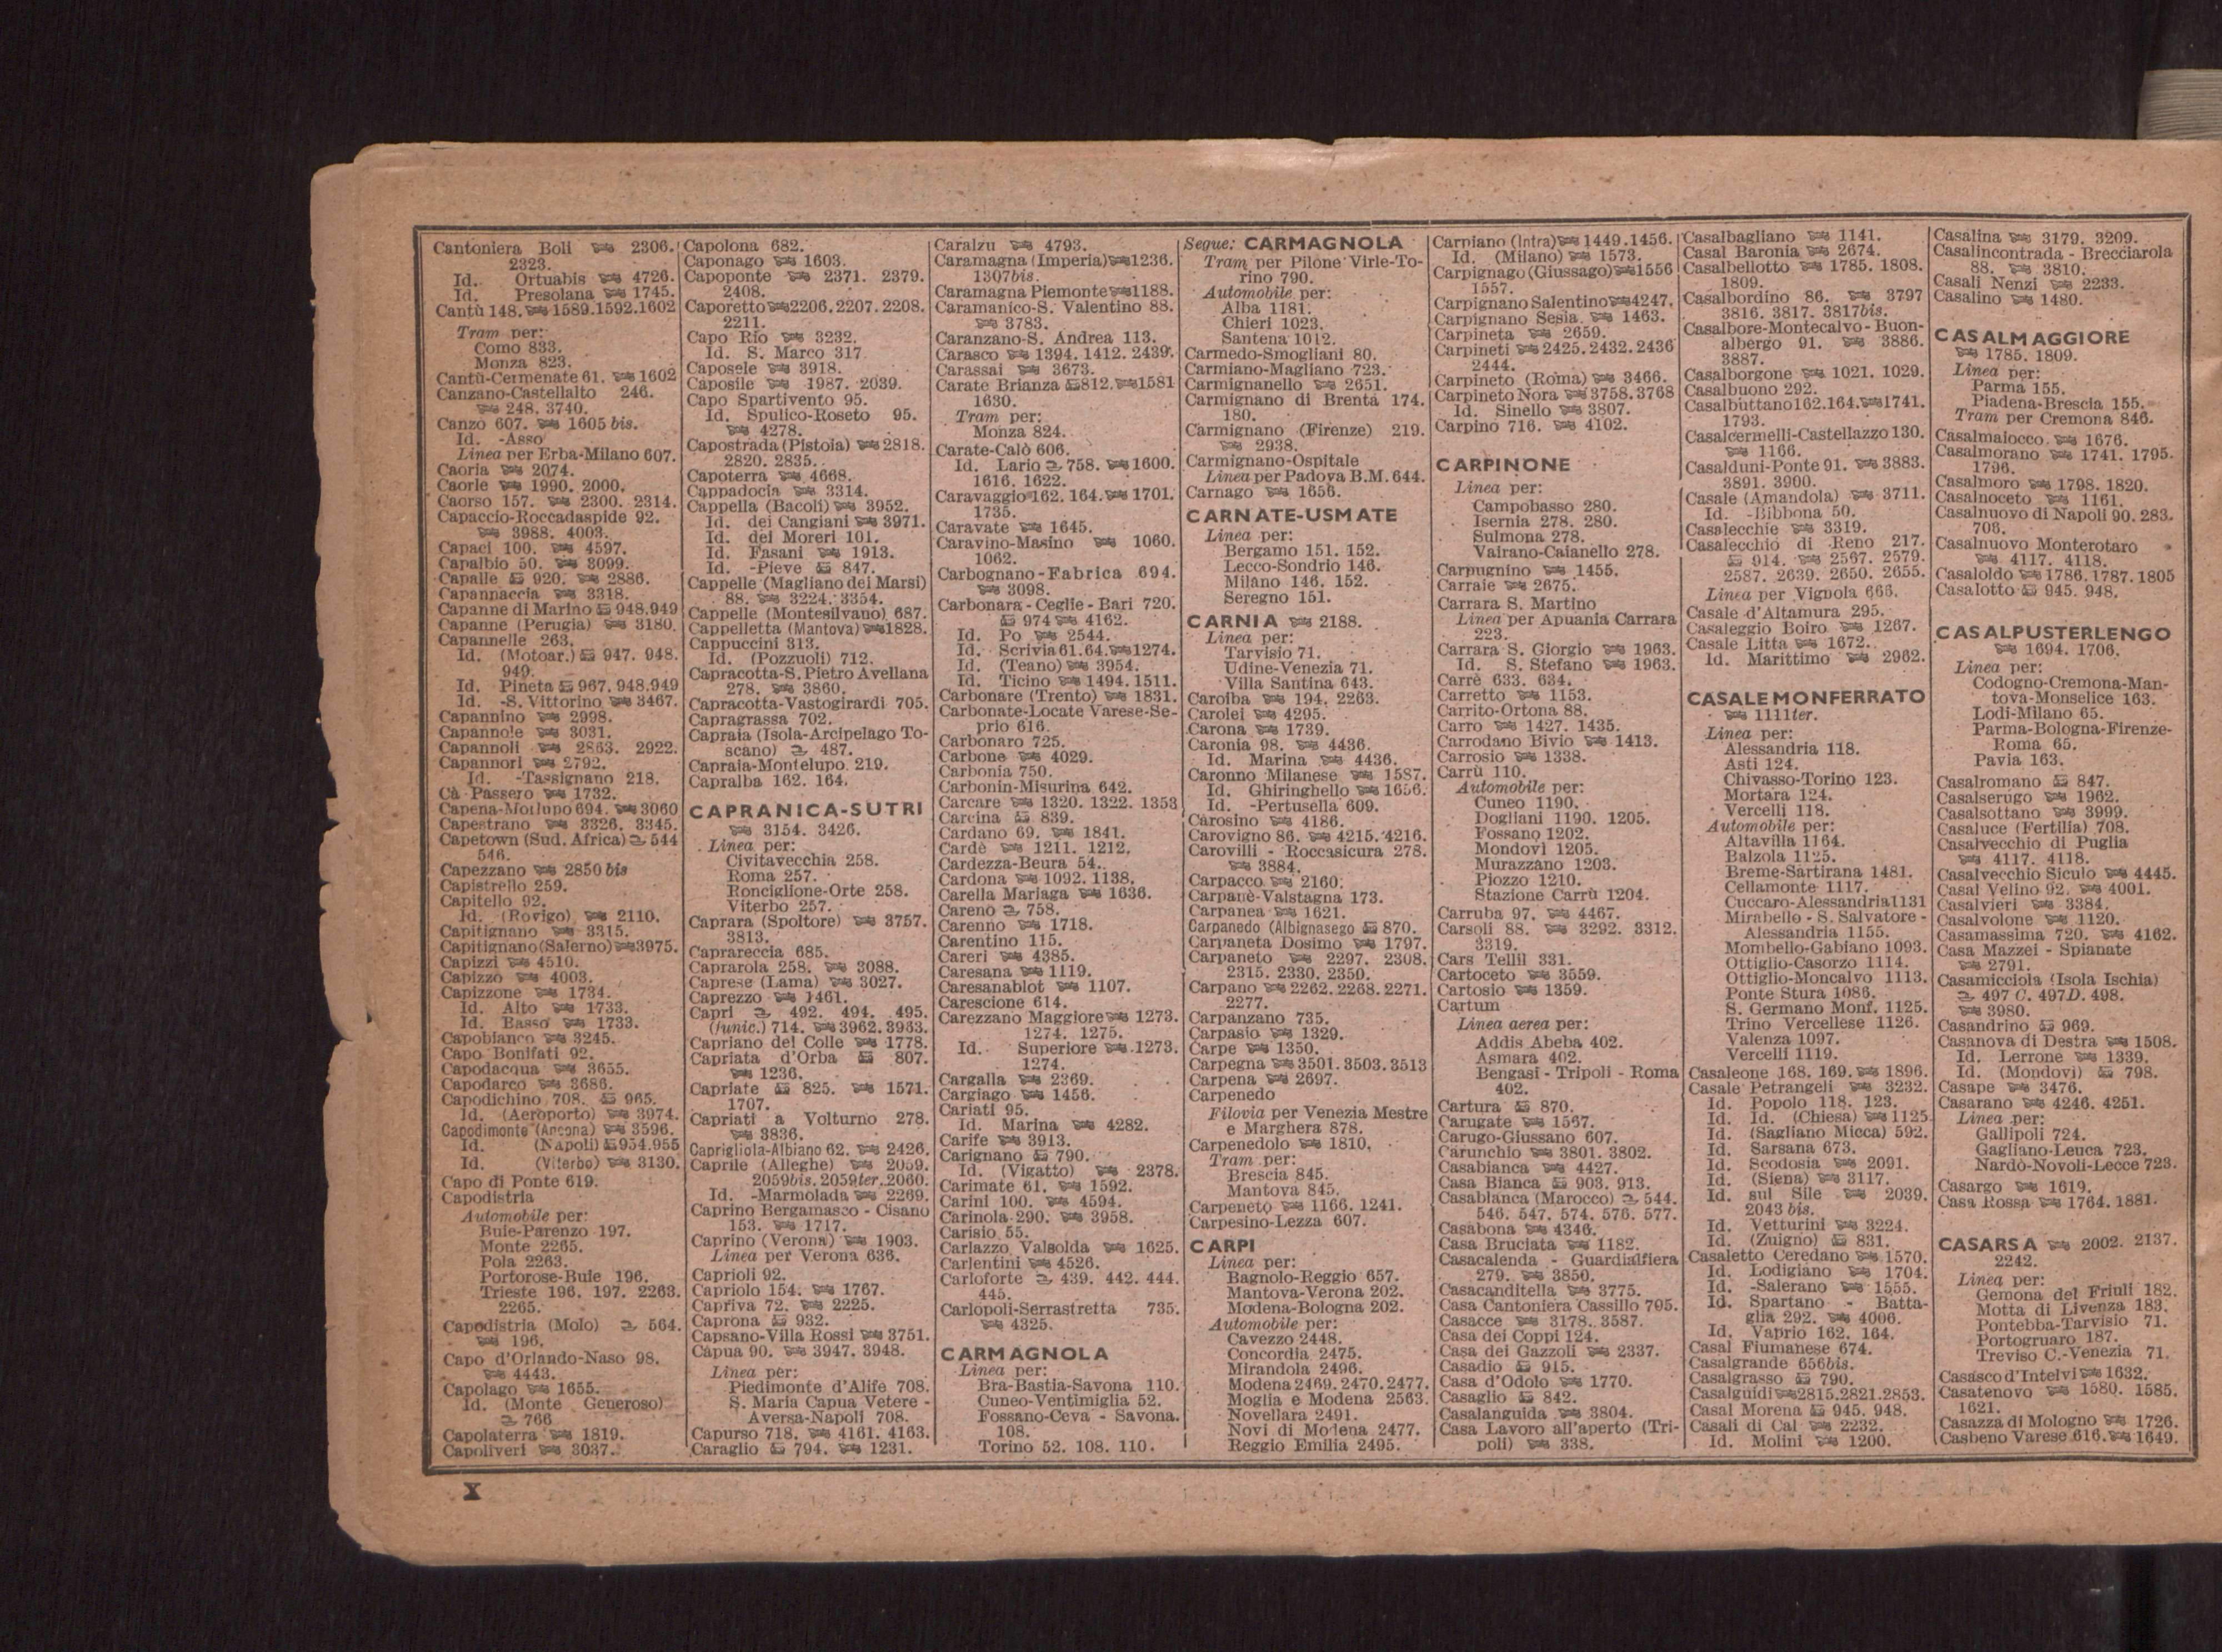 Cantoniera Boli 2306.
2323.
Id. Ortuabis 4726.
Id. Presolana 1745.
Cantù 148. 1589.1592.1602
Tram per:
Como 833.
Monza 823.
Cantù-Cermenate 61. 1602
Canzano-Castellalto 246.
248. 3740.
Canzo 607. 1605 bis.
Id. -Asso
Linea per Erba-Milano 607.
Caoria 2074.
Caorle 1990. 2000.
Caorso 157. 2300. 2314.
Capaccio-Roccadaspide 92.
3988. 4003.
Capaci 100. 4597.
Capalbio 50. 3099.
Capalle 920. 2886.
Capannaccia 3318.
Capanne di Marino 948.949
Capanne (Perugia) 3180.
Capannelle 263.
Id. (Motoar.) 947. 948.
949.
Id. Pineta 967. 948.949
Id. -S. Vittorino 3467.
Capannino 2998.
Capannole 3031.
Capannoli 2863. 2922.
Capannori 2792.
Id. -Tassignano 218.
Cà Passero 1732.
Capena-Morlupo 694. 3060
Capestrano 3326. 3345.
Capetown (Sud. Africa) 544
546.
Capezzano 2850 bis
Capistrello 259.
Capitello 92.
Id. (Rovigo) 2110.
Capitignano 3315.
Capitignano (Salerno) 3975.
Capizzi 4510.
Capizzo 4003.
Capizzone 1734.
Id. Alto 1733.
Id. Basso 1733.
Capobianco 3245.
Capo Bonifati 92.
Capodacqua 3655.
Capodarco 3686.
Capodichino 708. 965.
Id. (Aeroporto) 3974.
Capodimonte (Ancona) 3596.
Id. (Napoli) 954.955
Id. (Viterbo) 3130.
Capo di Ponte 619.
Capodistria
Automobile per:
Buie-Parenzo 197.
Monte 2265.
Pola 2263.
Portorose-Buie 196.
Trieste 196. 197. 2263.
2265.
Capodistria (Molo) 564.
196.
Capo d'Orlando-Naso 98.
4443.
Capolago 1655.
Id. (Monte Generoso)
766
Capolaterra 1819.
Capoliveri 3037.
Capolona 682.
Caponago 1603.
Capoponte 2371. 2379.
2408.
Caporetto 2206.2207.2208.
2211.
Capo Rio 3232.
Id. S. Marco 317.
Caposele 3918.
Caposile 1987. 2039.
Capo Spartivento 95.
Id. Spulico-Roseto 95.
4278.
Capostrada (Pistoia) 2818.
2820. 2835.
Capoterra 4668.
Cappadocia 3314.
Cappella (Bacoli) 3952.
Id. dei Cangiani 3971.
Id. dei Moreri 101.
Id. Fasani 1913.
Id. -Pieve 847.
Cappelle (Magliano dei Marsi)
88. 3224. 3354.
Cappelle (Montesilvano) 687.
Cappelletta (Mantova) 1828.
Cappuccini 313.
Id. (Pozzuoli) 712.
Capracotta-S. Pietro Avellana
278. 3860.
Capracotta-Vastogirardi 705.
Capragrassa 702.
Capraia (Isola-Arcipelago To-
scano) 487.
Capraia-Montelupo 219.
Capralba 162. 164.
CAPRANICA-SUTRI
3154. 3426.
Linea per:
Civitavecchia 258.
Roma 257.
Ronciglione-Orte 258.
Viterbo 257.
Caprara (Spoltore) 3757.
3813.
Caprareccia 685.
Caprarola 258. 3088.
Caprese (Lama) 3027.
Caprezzo 1461.
Capri 492. 494. 495.
(funic.) 714. 3962.3963.
Capriano del Colle 1778.
Capriata d'Orba 807.
1236.
Capriate 825. 1571.
1707.
Capriati a Volturno 278.
3836.
Caprigliola-Albiano 62. 2426.
Caprile (Alleghe) 2059.
2059bis. 2059ter. 2060.
Id. -Marmolada 2269.
Caprino Bergamasco - Cisano
153. 1717.
Caprino (Verona) 1903.
Linea per Verona 636.
Caprioli 92.
Capriolo 154. 1767.
Capriva 72. 2225.
Caprona 932.
Capsano-Villa Rossi 3751.
Capua 90. 3947. 3948.
Linea per:
Piedimonte d'Alife 708.
S. Maria Capua Vetere -
Aversa-Napoli 708.
Capurso 718. 4161. 4163.
Caraglio 794. 1231.
Caralzu 4793.
Caramagna (Imperia) 1236.
1307bis.
Caramagna Piemonte 1188.
Caramanico-S. Valentino 88.
3783.
Caranzano-S. Andrea 113.
Carasco 1394. 1412. 2439.
Carassai 3673.
Carate Brianza 812. 1581
1630.
Tram per:
Monza 824.
Carate-Calò 606.
Id. Lario 758. 1600.
1616. 1622.
Caravaggio 162. 164. 1701.
1735.
Caravate 1645.
Caravino-Masino 1060.
1062.
Carbognano-Fabrica 694.
3098.
Carbonara - Ceglie - Bari 720.
974 4162.
Id. Po 2544.
Id. Scrivia 61.64. 1274.
Id. (Teano) 3954.
Id. Ticino 1494. 1511.
Carbonare (Trento) 1831.
Carbonate-Locate Varese-Se-
prio 616.
Carbonaro 725.
Carbone 4029.
Carbonia 750.
Carbonin-Misurina 642.
Carcare 1320. 1322. 1353
Carcina 839.
Cardano 69. 1841.
Cardè 1211. 1212.
Cardezza-Beura 54.
Cardona 1092. 1138.
Carella Mariaga 1636.
Careno 758.
Carenno 1718.
Carentino 115.
Careri 4385.
Caresana 1119.
Caresanablot 1107.
Carescione 614.
Carezzano Maggiore 1273.
1274. 1275.
Id. Superiore 1273.
1274.
Cargalla 2369.
Cargiago 1456.
Cariati 95.
Id. Marina 4282.
Carife 3913.
Carignano 790.
Id. (Vigatto) 2378.
Carimate 61. 1592.
Carini 100. 4594.
Carinola 290. 3958.
Carisio 55.
Carlazzo Valsolda 1625.
Carlentini 4526.
Carloforte 439. 442. 444.
445.
Carlopoli-Serrastretta 735.
4325.
CARMAGNOLA
Linea per:
Bra-Bastia-Savona 110.
Cuneo-Ventimiglia 52.
Fossano-Ceva - Savona.
108.
Torino 52. 108. 110.
Segue: CARMAGNOLA
Tram per Pilone Virle-To-
rino 790.
Automobile per:
Alba 1181.
Chieri 1023.
Santena 1012.
Carmedo-Smogliani 80.
Carmiano-Magliano 723.
Carmignanello 2651.
Carmignano di Brenta 174.
180.
Carmignano (Firenze) 219.
2938.
Carmignano-Ospitale
Linea per Padova B.M. 644.
Carnago 1656.
CARNATE-USMATE
Linea per:
Bergamo 151. 152.
Lecco-Sondrio 146.
Milano 146. 152.
Seregno 151.
CARNIA 2188.
Linea per:
Tarvisio 71.
Udine-Venezia 71.
Villa Santina 643.
Caroiba 194. 2263.
Carolei 4295.
Carona 1739.
Caronia 98. 4436.
Id. Marina 4436.
Caronno Milanese 1587.
Id. Ghiringhello 1656.
Id. -Pertusella 609.
Carosino 4186.
Carovigno 86. 4215. 4216.
Carovilli - Roccasicura 278.
3884.
Carpacco 2160.
Carpanè-Valstagna 173.
Carpanea 1621.
Carpanedo (Albignasego 870.
Carpaneta Dosimo 1797.
Carpaneto 2297. 2308.
2315. 2330. 2350.
Carpano 2262. 2268. 2271.
2277.
Carpanzano 735.
Carpasio 1329.
Carpe 1350.
Carpegna 3501. 3503. 3513
Carpena 2697.
Carpenedo
Filovia per Venezia Mestre
e Marghera 878.
Carpenedolo 1810.
Tram per:
Brescia 845.
Mantova 845.
Carpeneto 1166. 1241.
Carpesino-Lezza 607.
CARPI
Linea per:
Bagnolo-Reggio 657.
Mantova-Verona 202.
Modena-Bologna 202.
Automobile per:
Cavezzo 2448.
Concordia 2475.
Mirandola 2496.
Modena 2469. 2470. 2477.
Moglia e Modena 2563.
Novellara 2491.
Novi di Modena 2477.
Reggio Emilia 2495.
Carpiano (Intra) 1449.1456.
Id. (Milano) 1573.
Carpignago (Giussago) 1556
1557.
Carpignano Salentino 4247.
Carpignano Sesia 1463.
Carpineta 2659.
Carpineti 2425. 2432. 2436
2444.
Carpineto (Roma) 3466.
Carpineto Nora 3758.3768
Id. Sinello 3807.
Carpino 716. 4102.
CARPINONE
Linea per:
Campobasso 280.
Isernia 278. 280.
Sulmona 278.
Vairano-Caianello 278.
Carpugnino 1455.
Carraie 2675.
Carrara S. Martino
Linea per Apuania Carrara
223.
Carrara S. Giorgio 1963.
Id. S. Stefano 1963.
Carrè 633. 634.
Carretto 1153.
Carrito-Ortona 88.
Carro 1427. 1435.
Carrodano Bivio 1413.
Carrosio 1338.
Carrù 110.
Automobile per:
Cuneo 1190.
Dogliani 1190. 1205.
Fossano 1202.
Mondovì 1205.
Murazzano 1203.
Piozzo 1210.
Stazione Carrù 1204.
Carruba 97. 4467.
Carsoli 88. 3292. 3312.
3319.
Cars Tellil 331.
Cartoceto 3559.
Cartosio 1359.
Cartum
Linea aerea per:
Addis Abeba 402.
Asmara 402.
Bengasi - Tripoli - Roma
402.
Cartura 870.
Carugate 1567.
Carugo-Giussano 607.
Carunchio 3801. 3802.
Casabianca 4427.
Casa Bianca 903. 913.
Casablanca (Marocco) 544.
546. 547. 574. 576. 577.
Casabona 4346.
Casa Bruciata 1182.
Casacalenda - Guardialfiera
279. 3850.
Casacanditella 3775.
Casa Cantoniera Cassillo 795.
Casacce 3178. 3587.
Casa dei Coppi 124.
Casa dei Gazzoli 2337.
Casadio 915.
Casa d'Odolo 1770.
Casaglio 842.
Casalanguida 3804.
Casa Lavoro all'aperto (Tri-
poli) 338.
Casalbagliano 1141.
Casal Baronia 2674.
Casalbellotto 1785. 1808.
1809.
Casalbordino 86. 3797
3816. 3817. 3817bis.
Casalbore-Montecalvo - Buon-
albergo 91. 3886.
3887.
Casalborgone 1021. 1029.
Casalbuono 292.
Casalbuttano 162.164. 1741.
1793.
Casalcermelli-Castellazzo 130.
1166.
Casalduni-Ponte 91. 3883.
3891. 3900.
Casale (Amandola) 3711.
Id. -Bibbona 50.
Casalecchie 3319.
Casalecchio di Reno 217.
914. 2567. 2579.
2587. 2639. 2650. 2655.
Linea per Vignola 666.
Casale d'Altamura 295.
Casaleggio Boiro 1267.
Casale Litta 1672.
Id. Marittimo 2962.
CASALE MONFERRATO
1111ter.
Linea per:
Alessandria 118.
Asti 124.
Chivasso-Torino 123.
Mortara 124.
Vercelli 118.
Automobile per:
Altavilla 1164.
Balzola 1125.
Breme-Sartirana 1481.
Cellamonte 1117.
Cuccaro-Alessandria 1131
Mirabello - S. Salvatore -
Alessandria 1155.
Mombello-Gabiano 1093.
Ottiglio-Casorzo 1114.
Ottiglio-Moncalvo 1113.
Ponte Stura 1086.
S. Germano Monf. 1125.
Trino Vercellese 1126.
Valenza 1097.
Vercelli 1119.
Casaleone 168. 169. 1896.
Casale Petrangeli 3232.
Id. Popolo 118. 123.
Id. Id. (Chiesa) 1125.
Id. (Sagliano Micca) 592.
Id. Sarsana 673.
Id. Scodosia 2091.
Id. (Siena) 3117.
Id. sul Sile 2039.
2043 bis.
Id. Vetturini 3224.
Id. (Zuigno) 831.
Casaletto Ceredano 1570.
Id. Lodigiano 1704.
Id. -Salerano 1555.
Id. Spartano - Batta-
glia 292. 4006.
Id. Vaprio 162. 164.
Casal Fiumanese 674.
Casalgrande 656bis.
Casalgrasso 790.
Casalguidi 2815.2821.2853.
Casal Morena 945. 948.
Casali di Cal 2232.
Id. Molini 1200.
Casalina 3179. 3209.
Casalincontrada - Brecciarola
88. 3810.
Casali Nenzi 2233.
Casalino 1480.
CASALMAGGIORE
1785. 1809.
Linea per:
Parma 155.
Piadena-Brescia 155.
Tram per Cremona 846.
Casalmaiocco 1676.
Casalmorano 1741. 1795.
1796.
Casalmoro 1798. 1820.
Casalnoceto 1161.
Casalnuovo di Napoli 90. 283.
706.
Casalnuovo Monterotaro
4117. 4118.
Casaloldo 1786. 1787. 1805
Casalotto 945. 948.
CASALPUSTERLENGO
1694. 1706.
Linea per:
Codogno-Cremona-Man-
tova-Monselice 163.
Lodi-Milano 65.
Parma-Bologna-Firenze-
Roma 65.
Pavia 163.
Casalromano 847.
Casalserugo 1962.
Casalsottano 3999.
Casaluce (Fertilia) 708.
Casalvecchio di Puglia
4117. 4118.
Casalvecchio Siculo 4445.
Casal Velino 92. 4001.
Casalvieri 3384.
Casalvolone 1120.
Casamassima 720. 4162.
Casa Mazzei - Spianate
2791.
Casamicciola (Isola Ischia)
497 C. 497D. 498.
3980.
Casandrino 969.
Casanova di Destra 1508.
Id. Lerrone 1339.
Id. (Mondovì) 798.
Casape 3476.
Casarano 4246. 4251.
Linea per:
Gallipoli 724.
Gagliano-Leuca 723.
Nardò-Novoli-Lecce 723.
Casargo 1619.
Casa Rossa 1764. 1881.
CASARSA 2002. 2137.
2242.
Linea per:
Gemona del Friuli 182.
Motta di Livenza 183.
Pontebba-Tarvisio 71.
Portogruaro 187.
Treviso C.-Venezia 71.
Casasco d'Intelvi 1632.
Casatenovo 1580. 1585.
1621.
Casazza di Mologno 1726.
Casbeno Varese 616. 1649.
X